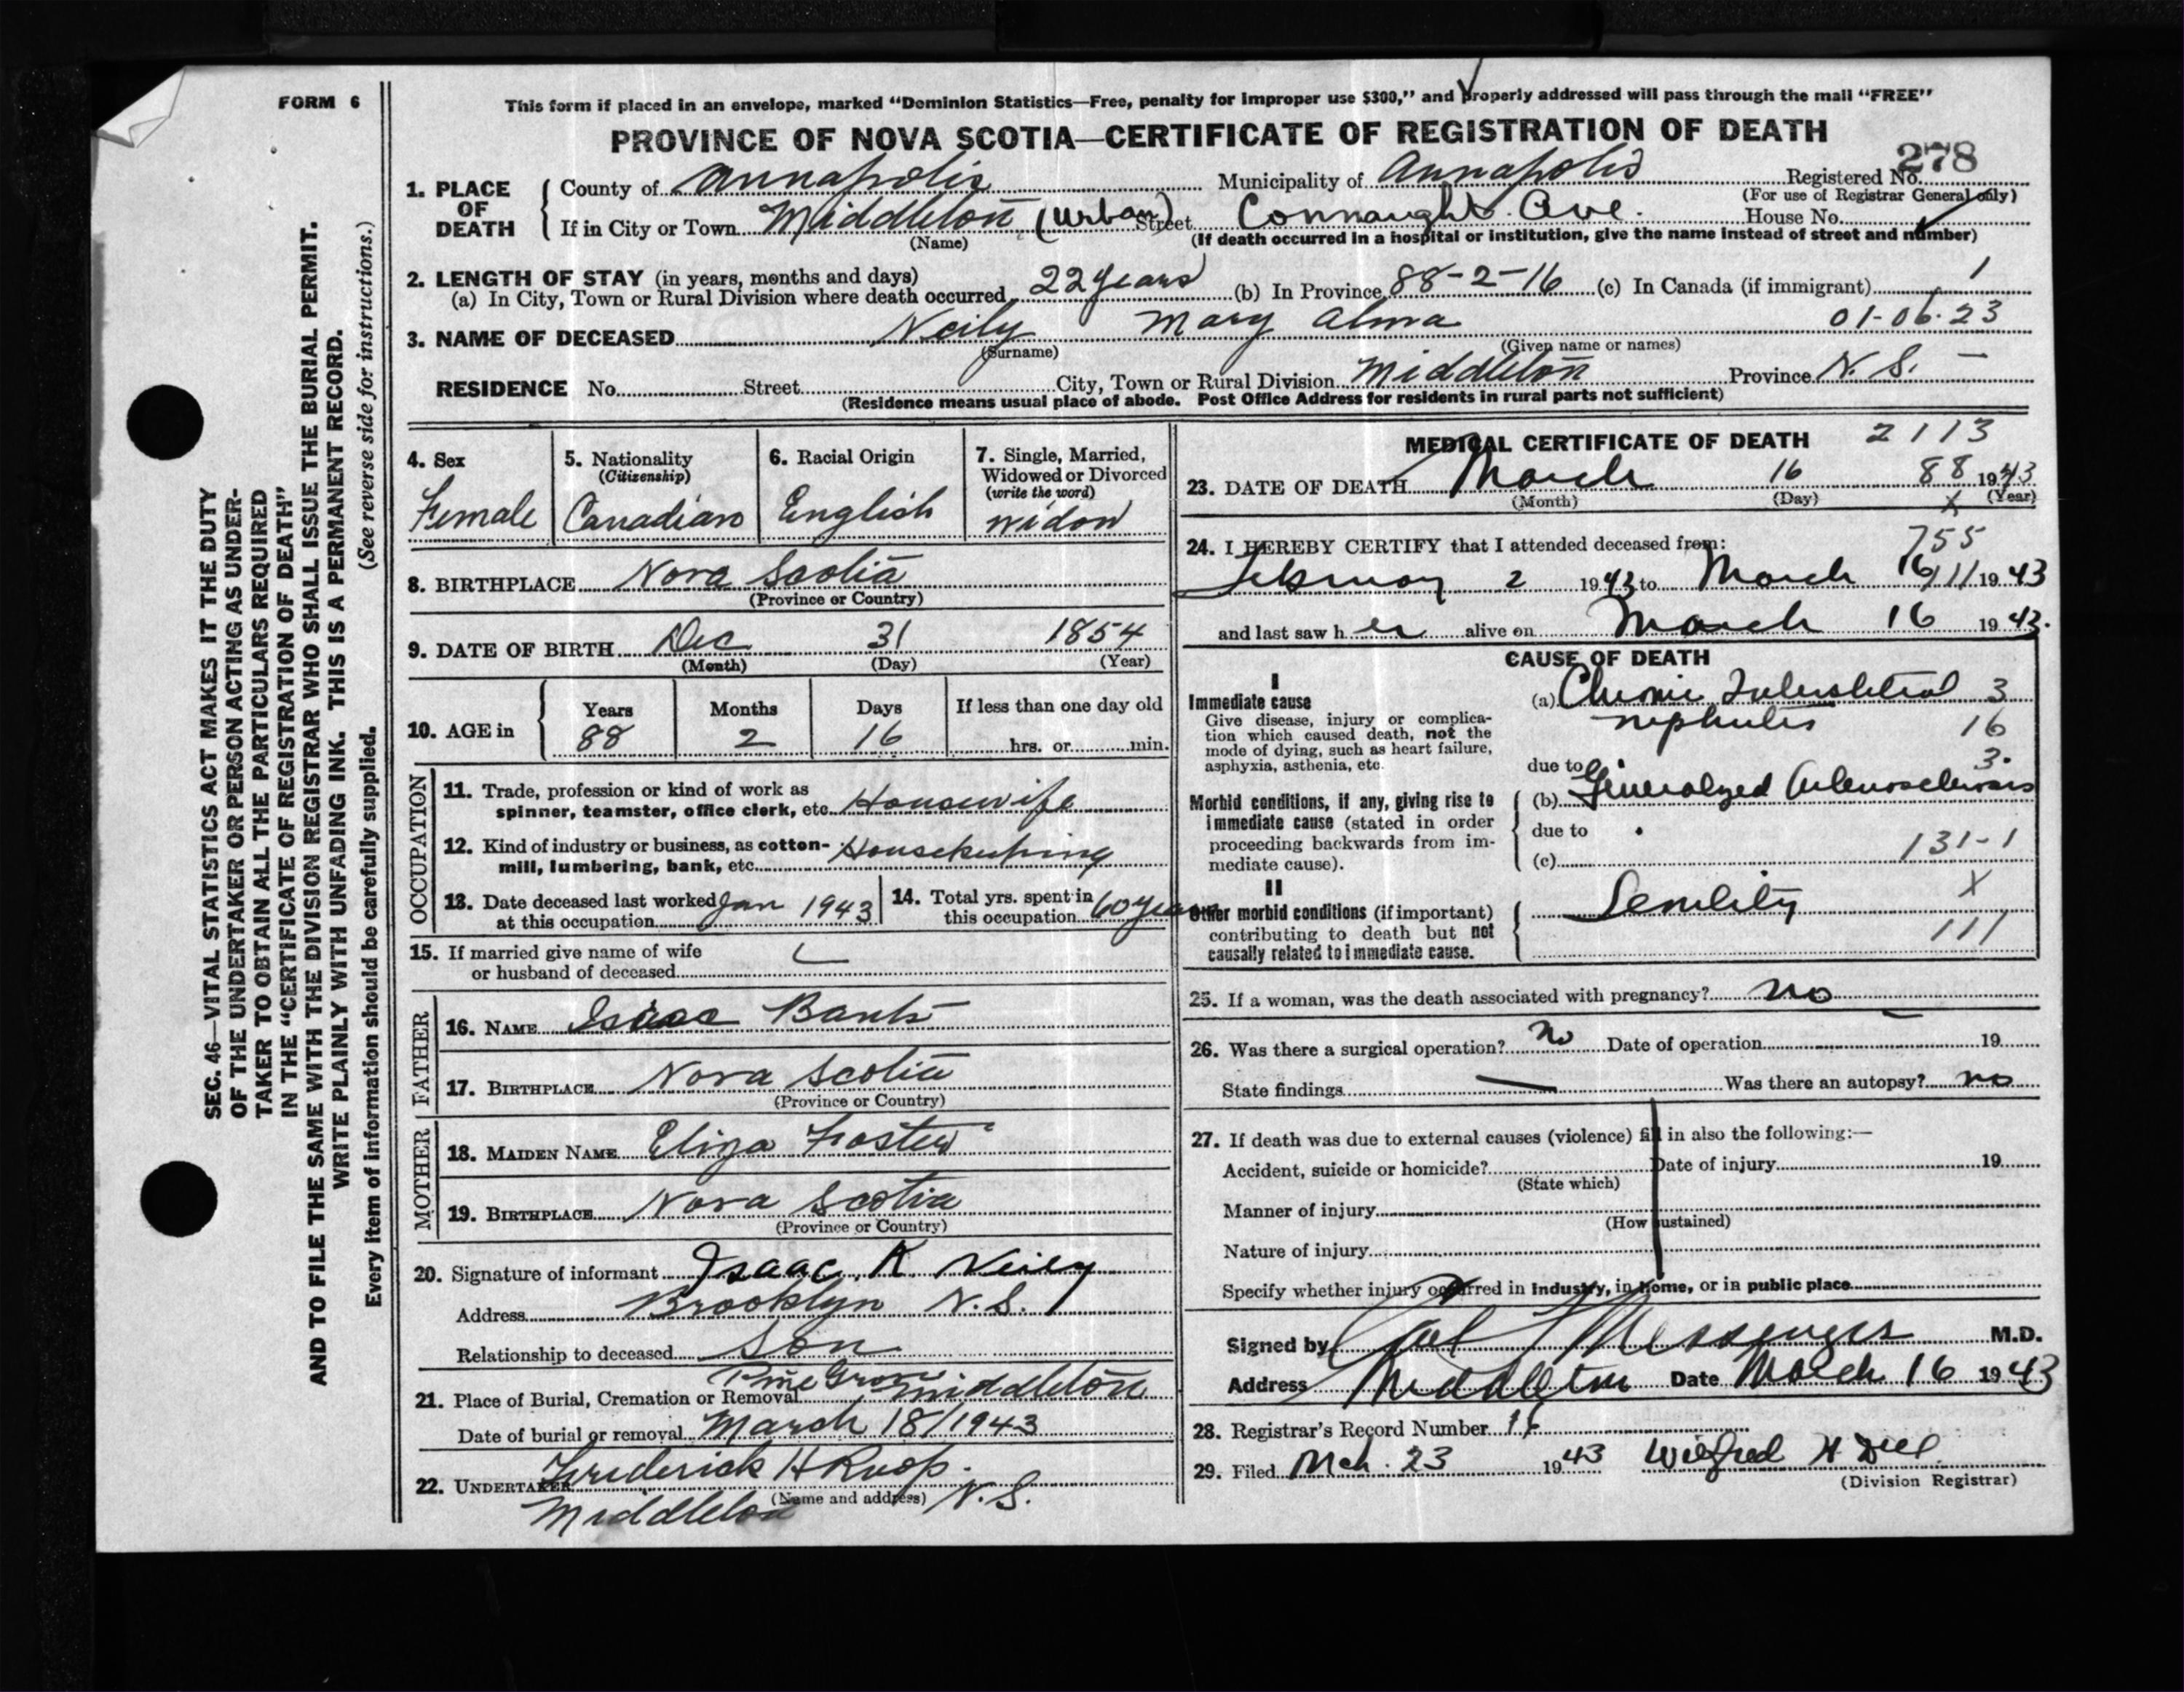 FORM 6
This form if placed in an envelope, marked “Dominion Statistics—Free, penalty for improper use $300,” and properly addressed will pass through the mail “FREE”
PROVINCE OF NOVA SCOTIA—CERTIFICATE OF REGISTRATION OF DEATH
278
1. PLACE OF DEATH County of Annapolis Municipality of Annapolis Registered No.
(For use of Registrar General only)
If in City or Town Middleton (Urban) Street Connaught Ave. House No.
(Name) (If death occurred in a hospital or institution, give the name instead of street and number)
2. LENGTH OF STAY (in years, months and days)
(a) In City, Town or Rural Division where death occurred 22 years (b) In Province 88-2-16 (c) In Canada (if immigrant) 1
3. NAME OF DECEASED Neily Mary Alma 01-06-23
(Surname) (Given name or names)
RESIDENCE No. Street City, Town or Rural Division Middleton Province N. S. —
(Residence means usual place of abode. Post Office Address for residents in rural parts not sufficient)
4. Sex Female
5. Nationality (Citizenship) Canadian
6. Racial Origin English
7. Single, Married, Widowed or Divorced (write the word) widow
8. BIRTHPLACE Nova Scotia
(Province or Country)
9. DATE OF BIRTH Dec 31 1854
(Month) (Day) (Year)
10. AGE in Years 88 Months 2 Days 16 If less than one day old hrs. or min.
OCCUPATION
11. Trade, profession or kind of work as
spinner, teamster, office clerk, etc. Housewife
12. Kind of industry or business, as cotton-
mill, lumbering, bank, etc. Housekeeping
13. Date deceased last worked at this occupation Jan 1943
14. Total yrs. spent in this occupation 60 years
15. If married give name of wife
or husband of deceased
FATHER
16. NAME Isaac Banks
17. BIRTHPLACE Nova Scotia
(Province or Country)
MOTHER
18. MAIDEN NAME Eliza Foster
19. BIRTHPLACE Nova Scotia
(Province or Country)
20. Signature of informant Isaac K Neily
Address Brooklyn N.S.
Relationship to deceased Son
21. Place of Burial, Cremation or Removal Pine Grove Middleton
Date of burial or removal March 18/1943
22. UNDERTAKER Frederick H Roop.
(Name and address)
Middleton N.S.
MEDICAL CERTIFICATE OF DEATH 2113
23. DATE OF DEATH March 16 88 1943
(Month) (Day) (Year)
X
24. I HEREBY CERTIFY that I attended deceased from: 755
February 2 1943 to March 16 111 1943
and last saw h er alive on March 16 1943.
CAUSE OF DEATH
I
Immediate cause (a) Chronic Interstitial 3
Give disease, injury or complica-
tion which caused death, not the
mode of dying, such as heart failure,
asphyxia, asthenia, etc.
nephritis 16
3.
due to
Morbid conditions, if any, giving rise to
immediate cause (stated in order
proceeding backwards from im-
mediate cause).
(b) Generalized Arteriosclerosis
due to
(c) 131-1
II
Other morbid conditions (if important)
contributing to death but not
causally related to immediate cause.
Senility X
111
25. If a woman, was the death associated with pregnancy? no
26. Was there a surgical operation? No Date of operation 19
State findings — Was there an autopsy? no
27. If death was due to external causes (violence) fill in also the following:—
Accident, suicide or homicide? Date of injury 19
(State which)
Manner of injury
(How sustained)
Nature of injury
Specify whether injury occurred in Industry, in home, or in public place
Signed by Messenger M.D.
Address Middleton Date March 16 1943
28. Registrar's Record Number
29. Filed Mch. 23 1943 Wilfred
(Division Registrar)
SEC. 46—VITAL STATISTICS ACT MAKES IT THE DUTY
OF THE UNDERTAKER OR PERSON ACTING AS UNDER-
TAKER TO OBTAIN ALL THE PARTICULARS REQUIRED
IN THE “CERTIFICATE OF REGISTRATION OF DEATH”
AND TO FILE THE SAME WITH THE DIVISION REGISTRAR WHO SHALL ISSUE THE BURIAL PERMIT.
WRITE PLAINLY WITH UNFADING INK. THIS IS A PERMANENT RECORD.
Every item of information should be carefully supplied. (See reverse side for instructions.)